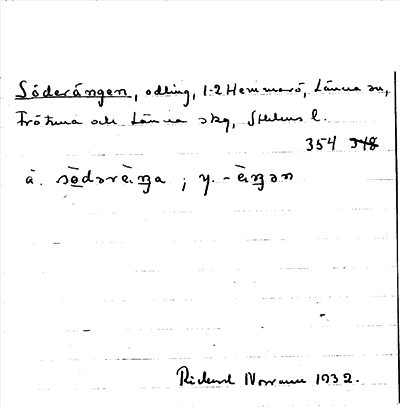 Söderängen, odling, 1-2 Hemmarö, Länna sn,
Frötuna och Länna skg, Sthlms l.
354 348
ä. sǝ̀dǝrèŋa ; y. -èŋǝn
Rickard Norman 1932.